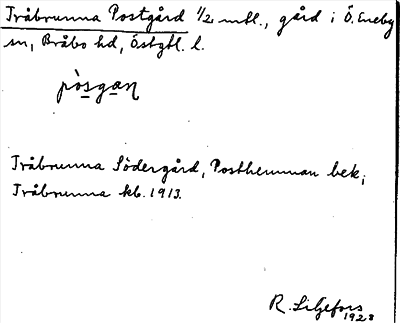 Tråbrunna Postgård 1/2 mtl., gård i Ö. Eneby
sn, Bråbo hd, Östgtl. l.
pòsgan
Tråbrunna Södergård, Posthemman bek.;
Tråbrunna kb. 1913.
R. Liljefors
1928